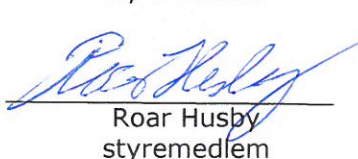 Roar Husby
Roar Husby
styremedlem